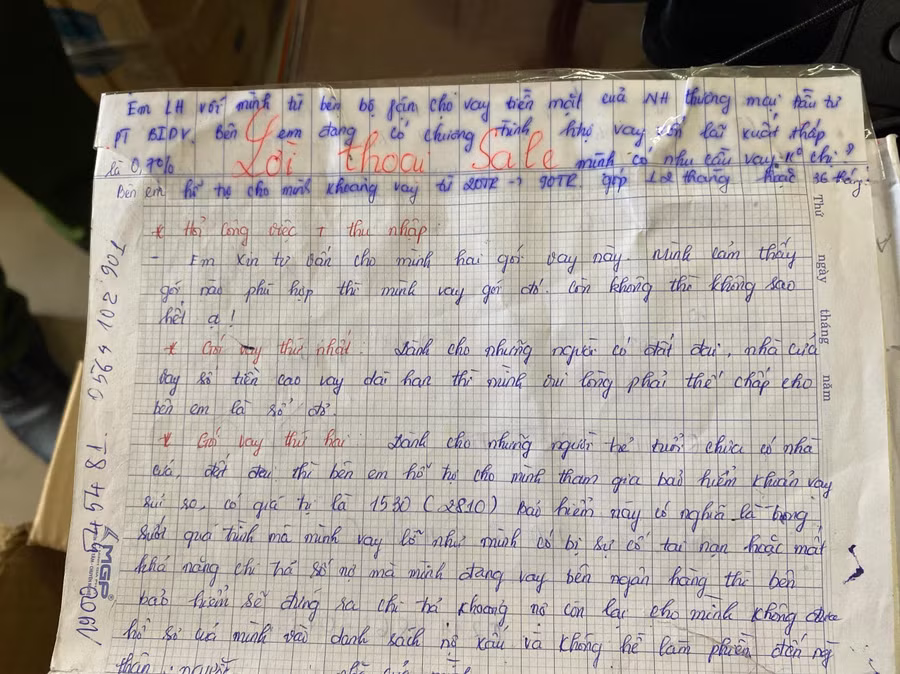 Em LH với mình từ bên bộ fận cho vay tiền mặt của NH thương mại đầu tư
PT BIDV. Bên em đang có chương trình hỗ vay với lãi xuất thấp
Lời thoại Sale
là 0,7% mình có nhu cầu vay k° chị?
Bên em hỗ trợ cho mình khoảng vay từ 20TR → 90TR góp 12 tháng hoặc 36 tháng.
* Hỏi công việc + thu nhập.
- Em xin tư vấn cho mình hai gói vay này. Mình cảm thấy
gói nào phù hợp thì mình vay gói đó. Còn không thì không sao
hết ạ!
* Gói vay thứ nhất. Dành cho những người có đất đai, nhà cửa
vay số tiền cao vay dài hạn thì mình vui lòng phải thế chấp cho
bên em là sổ đỏ.
* Gói vay thứ hai. Dành cho những người trẻ tuổi chưa có nhà
cửa, đất đai thì bên em hỗ trợ cho mình tham gia bảo hiểm khoản vay
rủi so, có giá trị là 1530 (2810) Bảo hiểm này có nghĩa là trong
suốt quá trình mà mình vay lỡ như mình có bị sự cố tai nạn hoặc mất
khả năng chi trả số nợ mà mình đang vay bên ngân hàng thì bên
bảo hiểm sẽ đứng ra chi trả khoảng nợ còn lại cho mình không đưa
hồ sơ của mình vào danh sách nợ xấu và không hề làm phiền đến ng
thân
Thứ ngày tháng năm
0564 102 901
1900 545481
MGP